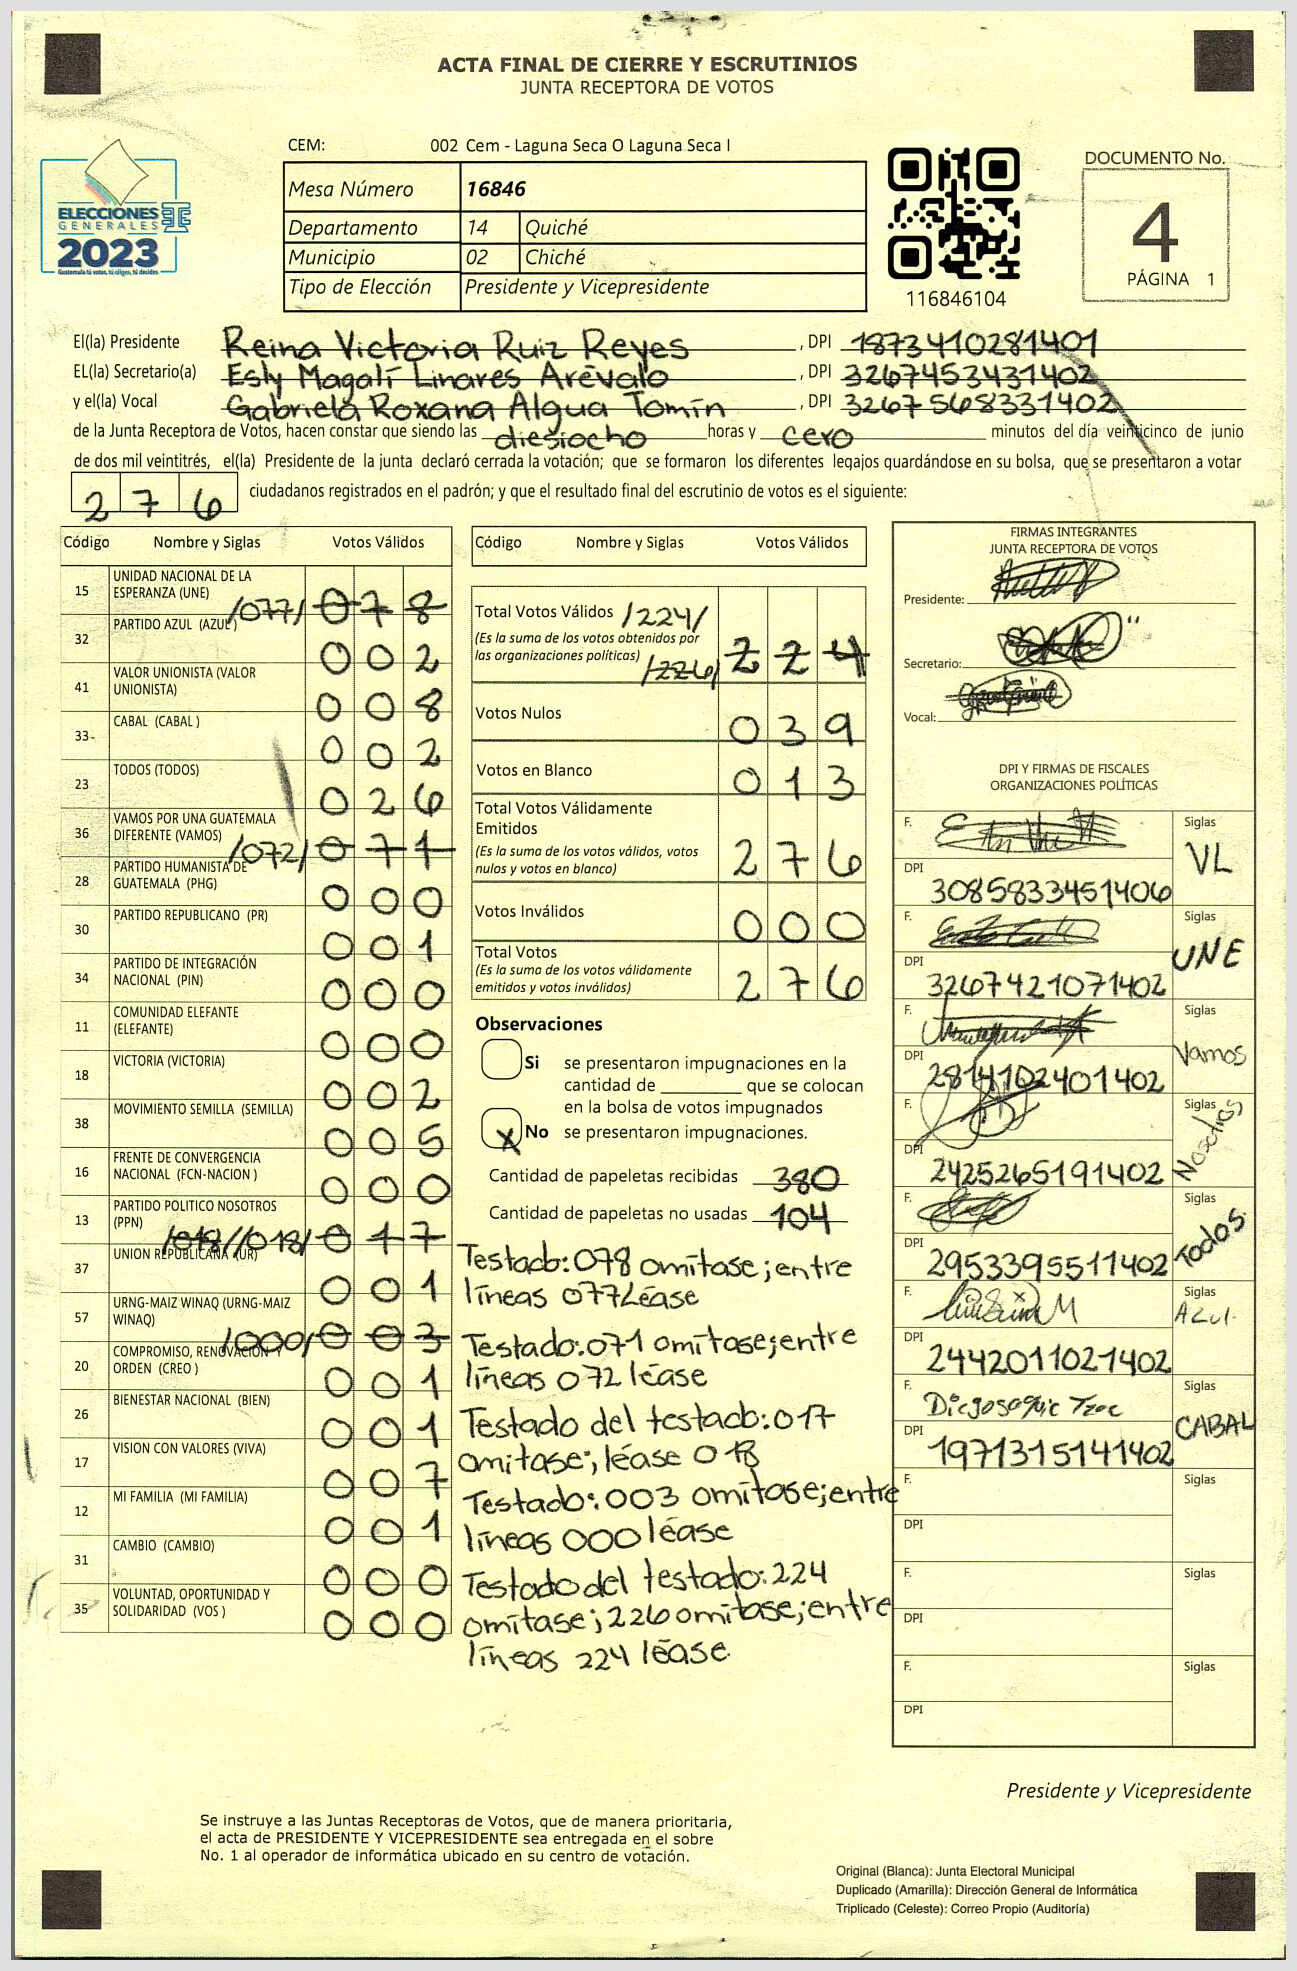 ACTA FINAL DE CIERRE Y ESCRUTINIOS
JUNTA RECEPTORA DE VOTOS
ELECCIONES
GENERALES
2023
Guatemala tú votas, tú eliges, tú decides
CEM: 002 Cem - Laguna Seca O Laguna Seca I
Mesa Número 16846
Departamento 14 Quiché
Municipio 02 Chiché
Tipo de Elección Presidente y Vicepresidente
116846104
DOCUMENTO No.
4
PÁGINA 1
El(la) Presidente Reina Victoria Ruiz Reyes , DPI 1873410281401
EL(la) Secretario(a) Esly Magalí Linares Arévalo , DPI 3267453431402
y el(la) Vocal Gabriela Roxana Algua Tomín , DPI 3267568331402
de la Junta Receptora de Votos, hacen constar que siendo las diesiocho horas y cero minutos del día veinticinco de junio
de dos mil veintitrés, el(la) Presidente de la junta declaró cerrada la votación; que se formaron los diferentes legajos guardándose en su bolsa, que se presentaron a votar
276 ciudadanos registrados en el padrón; y que el resultado final del escrutinio de votos es el siguiente:
Código Nombre y Siglas Votos Válidos
15 UNIDAD NACIONAL DE LA ESPERANZA (UNE) /077/ 078
32 PARTIDO AZUL (AZUL) 002
41 VALOR UNIONISTA (VALOR UNIONISTA) 008
33 CABAL (CABAL ) 002
23 TODOS (TODOS) 026
36 VAMOS POR UNA GUATEMALA DIFERENTE (VAMOS) /072/ 071
28 PARTIDO HUMANISTA DE GUATEMALA (PHG) 000
30 PARTIDO REPUBLICANO (PR) 001
34 PARTIDO DE INTEGRACIÓN NACIONAL (PIN) 000
11 COMUNIDAD ELEFANTE (ELEFANTE) 000
18 VICTORIA (VICTORIA) 002
38 MOVIMIENTO SEMILLA (SEMILLA) 005
16 FRENTE DE CONVERGENCIA NACIONAL (FCN-NACION ) 000
13 PARTIDO POLITICO NOSOTROS (PPN) /018//018/ 017
37 UNION REPUBLICANA (UR) 001
57 URNG-MAIZ WINAQ (URNG-MAIZ WINAQ) /000/ 003
20 COMPROMISO, RENOVACION Y ORDEN (CREO ) 001
26 BIENESTAR NACIONAL (BIEN) 001
17 VISION CON VALORES (VIVA) 007
12 MI FAMILIA (MI FAMILIA) 001
31 CAMBIO (CAMBIO) 000
35 VOLUNTAD, OPORTUNIDAD Y SOLIDARIDAD (VOS ) 000
Código Nombre y Siglas Votos Válidos
Total Votos Válidos /224/
(Es la suma de los votos obtenidos por
las organizaciones políticas) /226/ 224
Votos Nulos 039
Votos en Blanco 013
Total Votos Válidamente
Emitidos
(Es la suma de los votos válidos, votos
nulos y votos en blanco) 276
Votos Inválidos 000
Total Votos
(Es la suma de los votos válidamente
emitidos y votos inválidos) 276
Observaciones
Si se presentaron impugnaciones en la
cantidad de ________ que se colocan
en la bolsa de votos impugnados
X No se presentaron impugnaciones.
Cantidad de papeletas recibidas 380
Cantidad de papeletas no usadas 104
Testado: 078 omítase; entre
líneas 077 Léase
Testado: 071 omítase; entre
líneas 072 léase
Testado del testado: 017
omítase; léase 018
Testado: 003 omítase; entre
líneas 000 léase
Testado del testado: 224
omítase; 226 omítase; entre
líneas 224 léase
FIRMAS INTEGRANTES
JUNTA RECEPTORA DE VOTOS
Presidente:
Secretario:
Vocal:
DPI Y FIRMAS DE FISCALES
ORGANIZACIONES POLÍTICAS
F. Siglas VL
DPI 3085833451406
F. Siglas UNE
DPI 3267421071402
F. Siglas Vamos
DPI 2814102401402
F. Siglas Nosotros
DPI 2425265191402
F. Siglas Todos
DPI 2953395511402
F. Siglas AZUl.
DPI 2442011021402
F. Siglas CABAL
DPI 1971315141402
F. Siglas
DPI
F. Siglas
DPI
F. Siglas
DPI
Presidente y Vicepresidente
Se instruye a las Juntas Receptoras de Votos, que de manera prioritaria,
el acta de PRESIDENTE Y VICEPRESIDENTE sea entregada en el sobre
No. 1 al operador de informática ubicado en su centro de votación.
Original (Blanca): Junta Electoral Municipal
Duplicado (Amarilla): Dirección General de Informática
Triplicado (Celeste): Correo Propio (Auditoría)